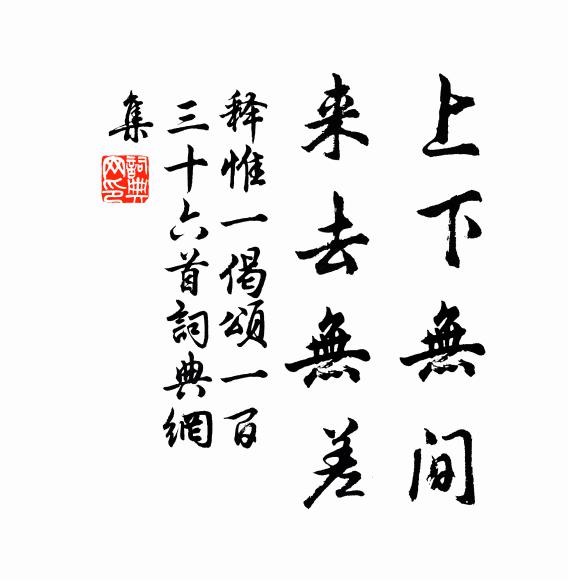 上下無间
来去無差
释惟一偈頌一百
三十六首詞典網
集
詞典網印